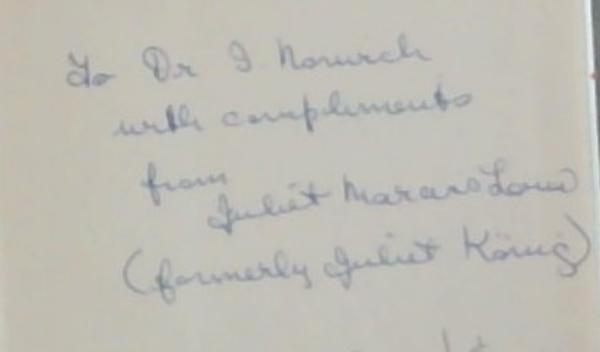 To Dr I Norwich
with compliments
from
Juliet Marais Louw
(formerly Juliet König)